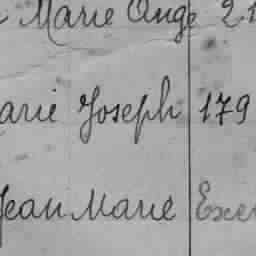 Marie Ange 21
arie Joseph 179
Jean Marie Exe